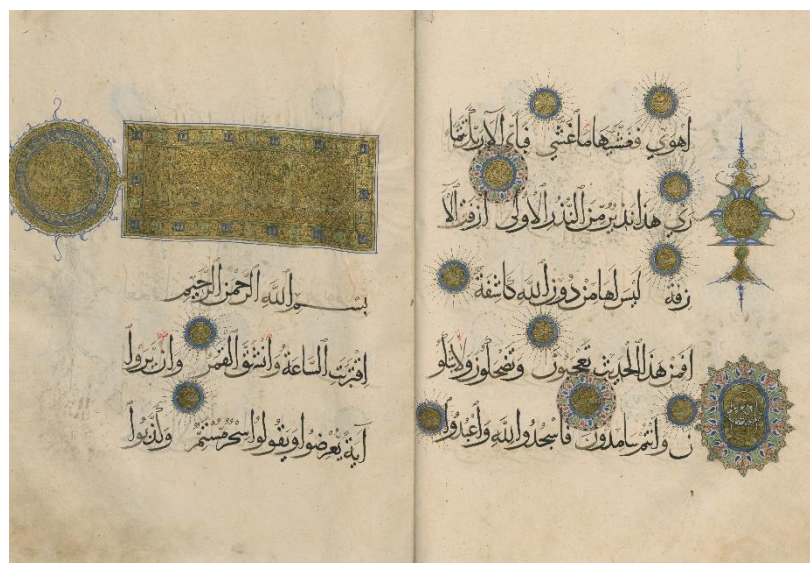 اهوي فغشيها ما غشي فباي الآ ربك تتما
ري هذا نذير من النذر الأولى ازفت الآ
زفة ليس لها من دون الله كاشفة
افمن هذا الحديث تعجبون وتضحكون ولا تبكو
ن وانتم سامدون فاسجدوا لله واعبدوا
بسم الله الرحمن الرحيم
اقتربت الساعة وانشق القمر وان يروا
آية يعرضوا ويقولوا سحر مستمر وكذبوا